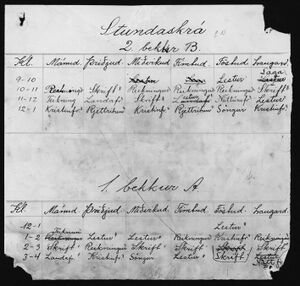 Stundaskrá
2. bekkur B.
Kl. Mánud Þriðjud Miðvikud Fimtud Föstud Laugard
Saga
9-10 Lestur
10-11 Reikning Skrift Reikningur Reikningur Reikning Skrift
Lestur
11-12 Landaf Skrift Náttúruf Lestur
12-1 Kristinf Rjettritun Kristinf Rjettritun Söngur Kristinf
1. bekkur A.
Kl. Mánud Þriðjud Miðvikud Fimtud Föstud Laugard
12-1 Lestur
1-2 Lestur Lestur Reikningur Kristinf Reikning
2-3 Skrift Reikningur Skrift Skrift Skrift
3-4 Landaf Kristinf Söngur Skrift Lestur